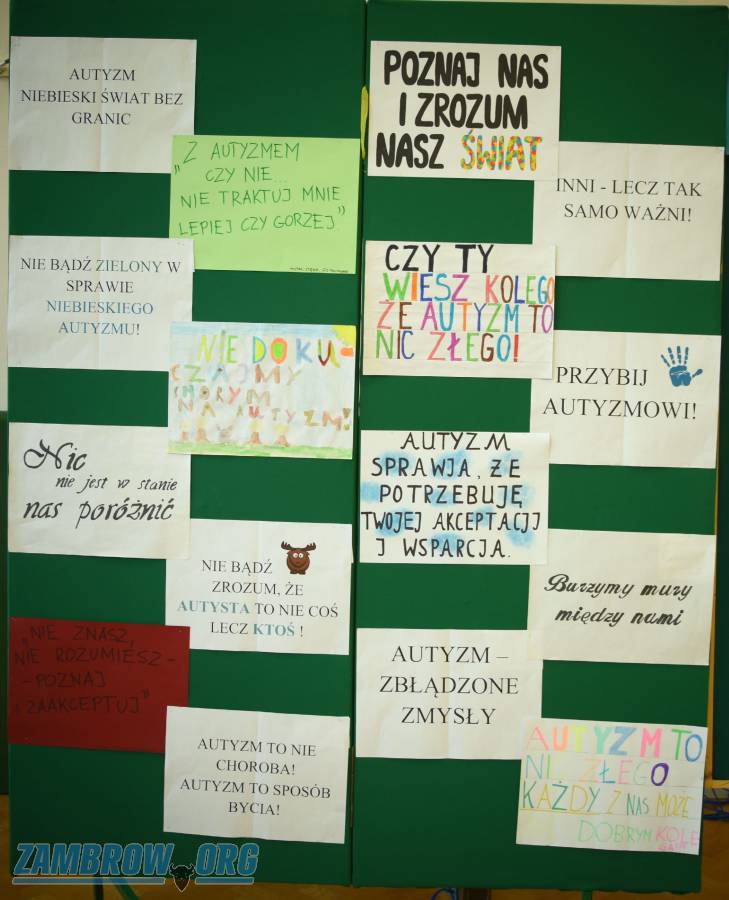 AUTYZM
NIEBIESKI ŚWIAT BEZ
GRANIC
„Z AUTYZMEM
CZY NIE...
NIE TRAKTUJ MNIE
LEPIEJ CZY GORZEJ."
NIE BĄDŹ ZIELONY W
SPRAWIE
NIEBIESKIEGO
AUTYZMU!
NIE DOKU-
CZAJMY
CHORYM
NA AUTYZM!
Nic
nie jest w stanie
nas poróżnić
NIE BĄDŹ
ZROZUM, ŻE
AUTYSTA TO NIE COŚ
LECZ KTOŚ !
„NIE ZNASZ,
NIE ROZUMIESZ-
-POZNAJ
I ZAAKCEPTUJ"
AUTYZM TO NIE
CHOROBA!
AUTYZM TO SPOSÓB
BYCIA!
POZNAJ NAS
I ZROZUM
NASZ ŚWIAT
INNI - LECZ TAK
SAMO WAŻNI!
CZY TY
WIESZ KOLEGO
ŻE AUTYZM TO
NIC ZŁEGO!
PRZYBIJ
AUTYZMOWI!
AUTYZM
SPRAWJA, ŻE
POTRZEBUJĘ
TWOJEJ AKCEPTACJJ
J WSPARCJA.
Burzymy mury
między nami
AUTYZM –
ZBŁĄDZONE
ZMYSŁY
AUTYZM TO
NIC ZŁEGO
KAŻDY Z NAS MOŻE
DOBRYM KOLE
ZAMBROW.ORG